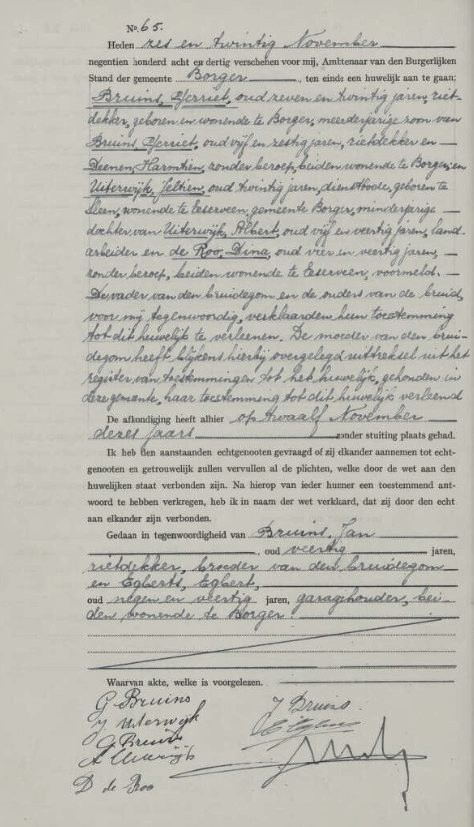 No. 65.
Heden zes en twintig November
negentien honderd acht en dertig verschenen voor mij, Ambtenaar van den Burgerlijken
Stand der gemeente Borger, ten einde een huwelijk aan te gaan:
Bruins, Gerriet, oud zeven en twintig jaren, riet-
dekker, geboren en wonende te Borger, meerderjarige zoon van
Bruins, Gerriet, oud vijf en zestig jaren, rietdekker en
Deenen, Harmtien, zonder beroep, beiden wonende te Borger, en
Uiterwijk, Jeltien, oud twintig jaren, dienstbode, geboren te
Sleen, wonende te Eeserveen, gemeente Borger, minderjarige
dochter van Uiterwijk, Albert, oud vijf en veertig jaren, land-
arbeider en de Roo, Dina, oud vier en veertig jaren,
zonder beroep, beiden wonende te Eeserveen, voormeld.
De vader van den bruidegom en de ouders van de bruid,
voor mij tegenwoordig, verklaarden hun toestemming
tot dit huwelijk te verleenen. De moeder van den brui-
degom heeft blijkens hierbij overgelegd uittreksel uit het
register van toestemmingen tot het huwelijk, gehouden in
deze gemeente, haar toestemming tot dit huwelijk verleend
De afkondiging heeft alhier op twaalf November
dezes jaars zonder stuiting plaats gehad.
Ik heb den aanstaanden echtgenooten gevraagd of zij elkander aannemen tot echt-
genooten en getrouwelijk zullen vervullen al de plichten, welke door de wet aan den
huwelijken staat verbonden zijn. Na hierop van ieder hunner een toestemmend ant-
woord te hebben verkregen, heb ik in naam der wet verklaard, dat zij door den echt
aan elkander zijn verbonden.
Gedaan in tegenwoordigheid van Bruins, Jan
, oud veertig jaren,
rietdekker, broeder van den bruidegom
en Egberts, Egbert,
oud negen en veertig jaren, garagehouder, bei-
den wonende te Borger.
Waarvan akte, welke is voorgelezen.
G Bruins
J Bruins
J Uiterwijk
G Bruins
A Uiterwijk
D de Roo